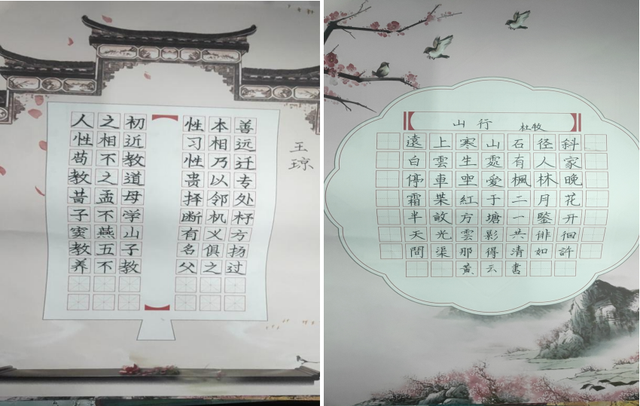 人之初 性本善
性相近 习相远
苟不教 性乃迁
教之道 贵以专
昔孟母 择邻处
子不学 断机杼
窦燕山 有义方
教五子 名俱扬
养不教 父之过
王琼
山行 杜牧
遠上寒山石径斜
白雲生處有人家
停車坐愛枫林晚
霜葉紅于二月花
半畝方塘一鑒开
天光雲影共徘徊
問渠那得清如許
黄云書